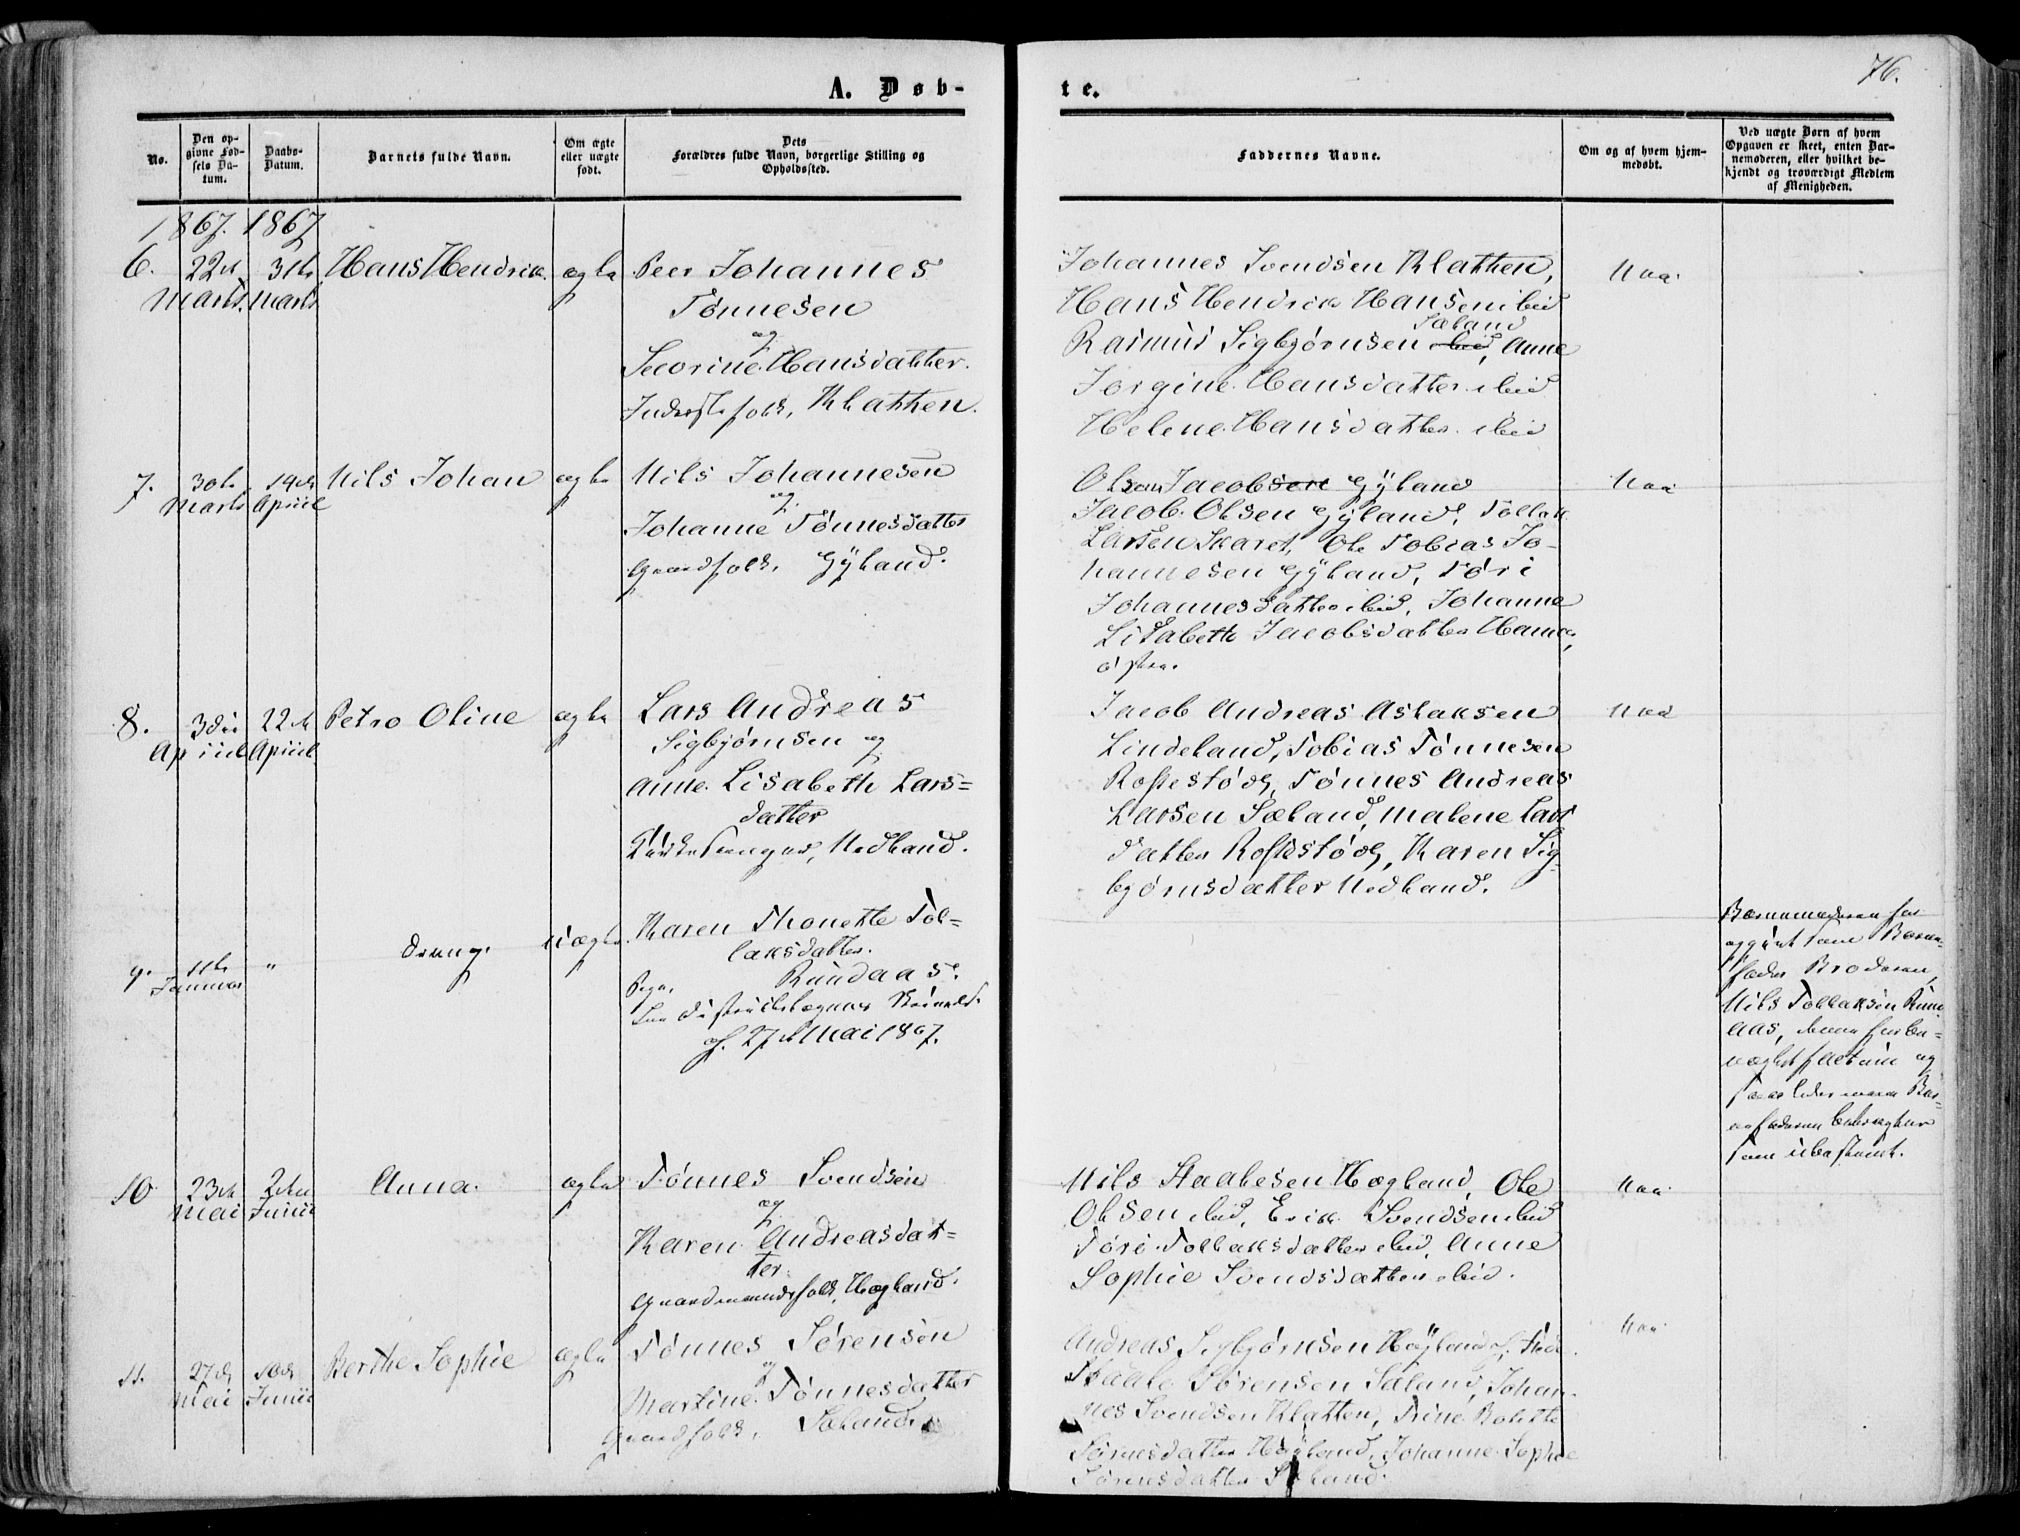 76.
A. Døb-
te.
No.
Den op-
givne Fød-
sels Da-
tum.
Daabs-
Datum.
Barnets fulde Navn.
Om ægte
eller uægte
født.
Dets
Forældres fulde Navn, borgerlige Stilling og
Opholdssted.
Faddernes Navne.
Om og af hvem hjem-
medøbt.
Ved uægte Børn af hvem
Opgaven er skeet, enten Bar-
nemoderen, eller hvilket be-
kjendt og troværdigt Medlem
af Menigheden.
1867. 1867
6.
22de
Marts.
31te
Marts
Hans Hendrik
ægte
Peer Johannes
Tønnesen
og
Severine Hansdatter.
Inderstfolk, Klatten.
Johannes Svendsen Klatten,
Hans Hendrik Hansen ibid
Sæland
Rasmus Sigbjørnsen ibid, Anne
Jorgine Hansdatter ibid
Helene Hansdatter ibid
Naa
7.
30te
Marts
19de
April
Nils Johan
ægte
Nils Johannesen
og
Johanne Tønnesdatter
Gaardfolk, Gyland.
Jacobsen Gyland
Jacob Olsen Gyland, Tollak
Larsen Skaret, Ole Tobias Jo-
hannesen Gyland, Tøri
Johannesdatter ibid, Johanne
Lisabeth Jacobsdatter
østre.
Naa
8.
3die
April
22de
April
Petro Oline
ægte
Lars Andreas
Sigbjørnsen og
Anne Lisabeth Lars=
datter
Kirkesanger, Nedland.
Jacob Andreas Aslaksen
Lindeland, Tobias Tønnesen
Rostestøds, Tønnes Andreas
Larsen Sæland, Malene Lars
datter Rostestøds, Karen Sig-
bjørnsdatter Nedland.
Naa
9.
11te
Januar
"
Dreng.
uægte.
Karen Thonette Tol=
laksdatter.
Pige, Rundaas.
Distriktslægens
af 27de Mai 1867.
Barnemoderen har
opgivt som Barne-
fader Broderen,
Nils Tollaksen Rund
aas,
factum og
Bar=
som ubestemt.
10
23de
Mai
2den
Junii
Anna.
ægte
Tønnes Svendsen
og
Karen Andreasdat=
ter
Gaardmandsfolk, Høgland.
Nils Staalesen Høgland, Ole
Olsen ibid, Erik Svendsen ibid
Tøri Tollaksdatter ibid, Anne
Sophie Svendsdatter ibid.
Naa
11.
27de
Mai
10de
Junii
Berthe Sophie
ægte
Tønnes Sørensen
og
Martine Tønnesdatter
Gaardfolk, Sæland
Andreas Sigbjørnsen Høyland
Staale Sørensen Sæland, Johan-
nes Svendsen Klatten, Trine Bolette
Sørensdatter Høyland, Johanne Sophie
Sørensdatter Sæland.
Naa